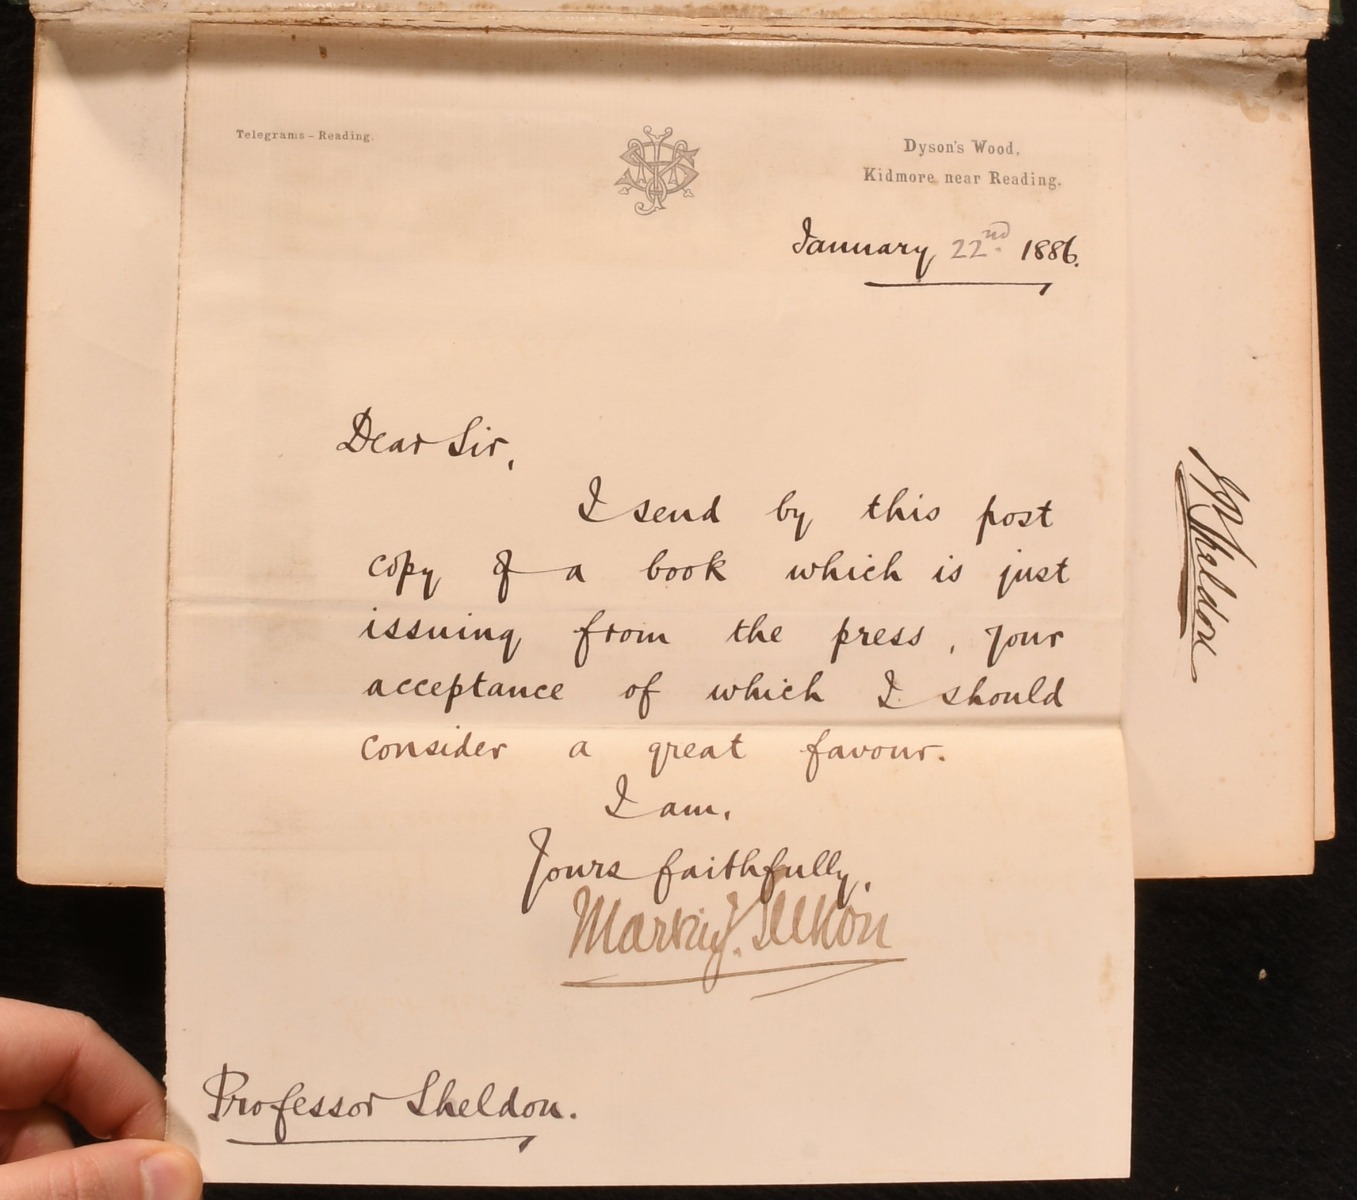 Telegrams - Reading.
Dyson's Wood,
Kidmore near Reading.
January 22nd. 1886.
Dear Sir,
I send by this post
copy of a book which is just
issuing from the press, your
acceptance of which I should
consider a great favour.
I am,
Yours faithfully,
Martin J. Sutton
Professor Sheldon.
Sheldon